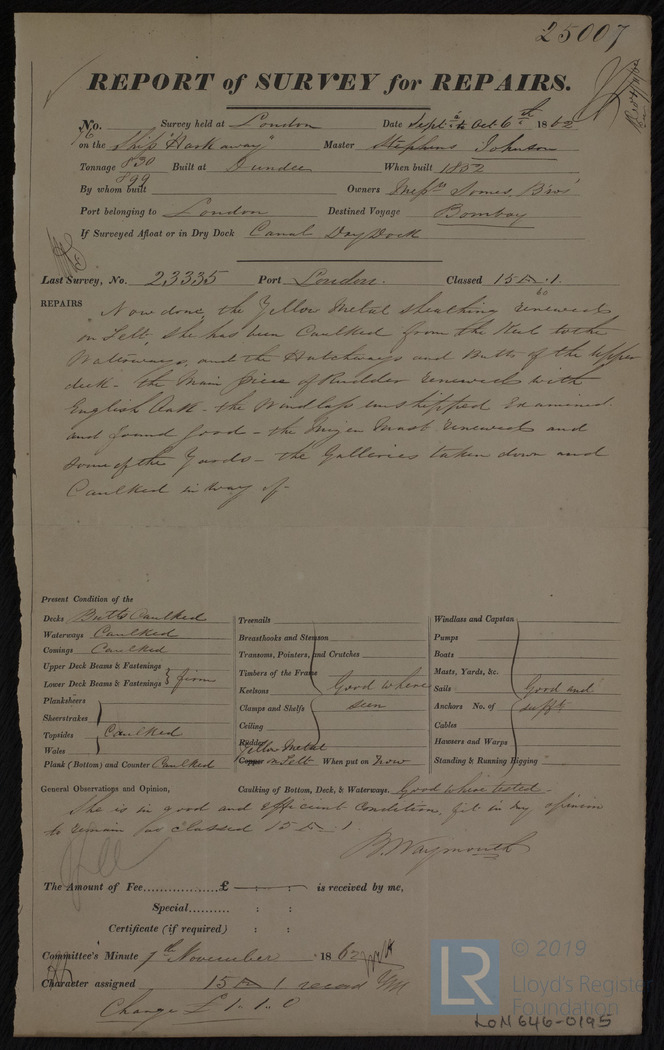 25007
REPORT of SURVEY for REPAIRS.
No. Survey held at London Date Sept & Oct 6th 1862
on the Ship "Harkaway" Master Stephens Johnson
Tonnage 830 899 Built at Dundee When built 1852
By whom built Owners Messrs Somes Bros
Port belonging to London Destined Voyage Bombay
If Surveyed Afloat or in Dry Dock Canal Dry Dock
Last Survey, No. 23335 Port London. Classed 15 A.1.
REPAIRS Now done, the Yellow Metal sheathing renewed
on Felt, She has been Caulked from the Keel to the
Waterways, and the Hatchways and Butts of the Upper
deck - the Main piece of Rudder renewed with
English Oak - the Windlass unshipped Examined
and found good - the Mizen Mast renewed and
some of the Yards - the Galleries taken down and
Caulked in way of -
Present Condition of the
Decks Butts Caulked
Waterways Caulked
Comings Caulked
Upper Deck Beams & Fastenings
Lower Deck Beams & Fastenings } firm
Planksheers
Sheerstrakes
Topsides } Caulked
Wales
Plank (Bottom) and Counter Caulked
Treenails
Breasthooks and Stemson
Transoms, Pointers, and Crutches
Timbers of the Frame
Keelsons } Good where
Clamps and Shelfs seen
Ceiling
Rudder
Yellow Metal
Copper on Felt When put on Now
Windlass and Capstan
Pumps
Boats
Masts, Yards, &c.
Sails } Good and
Anchors No. of sufft
Cables
Hawsers and Warps
Standing & Running Rigging
General Observations and Opinion, Caulking of Bottom, Deck, & Waterways. Good where tested
She is in good and efficient Condition, fit in my opinion
to remain as Classed 15 A 1
B. Waymouth
The Amount of Fee............... £ : : is received by me,
Special.......... : :
Certificate (if required) : :
Committee's Minute 7th November 1862
Character assigned 15 A 1 record YM
Change £ 1.1.0
© 2019
LR Lloyd's Register
Foundation
LON646-0195